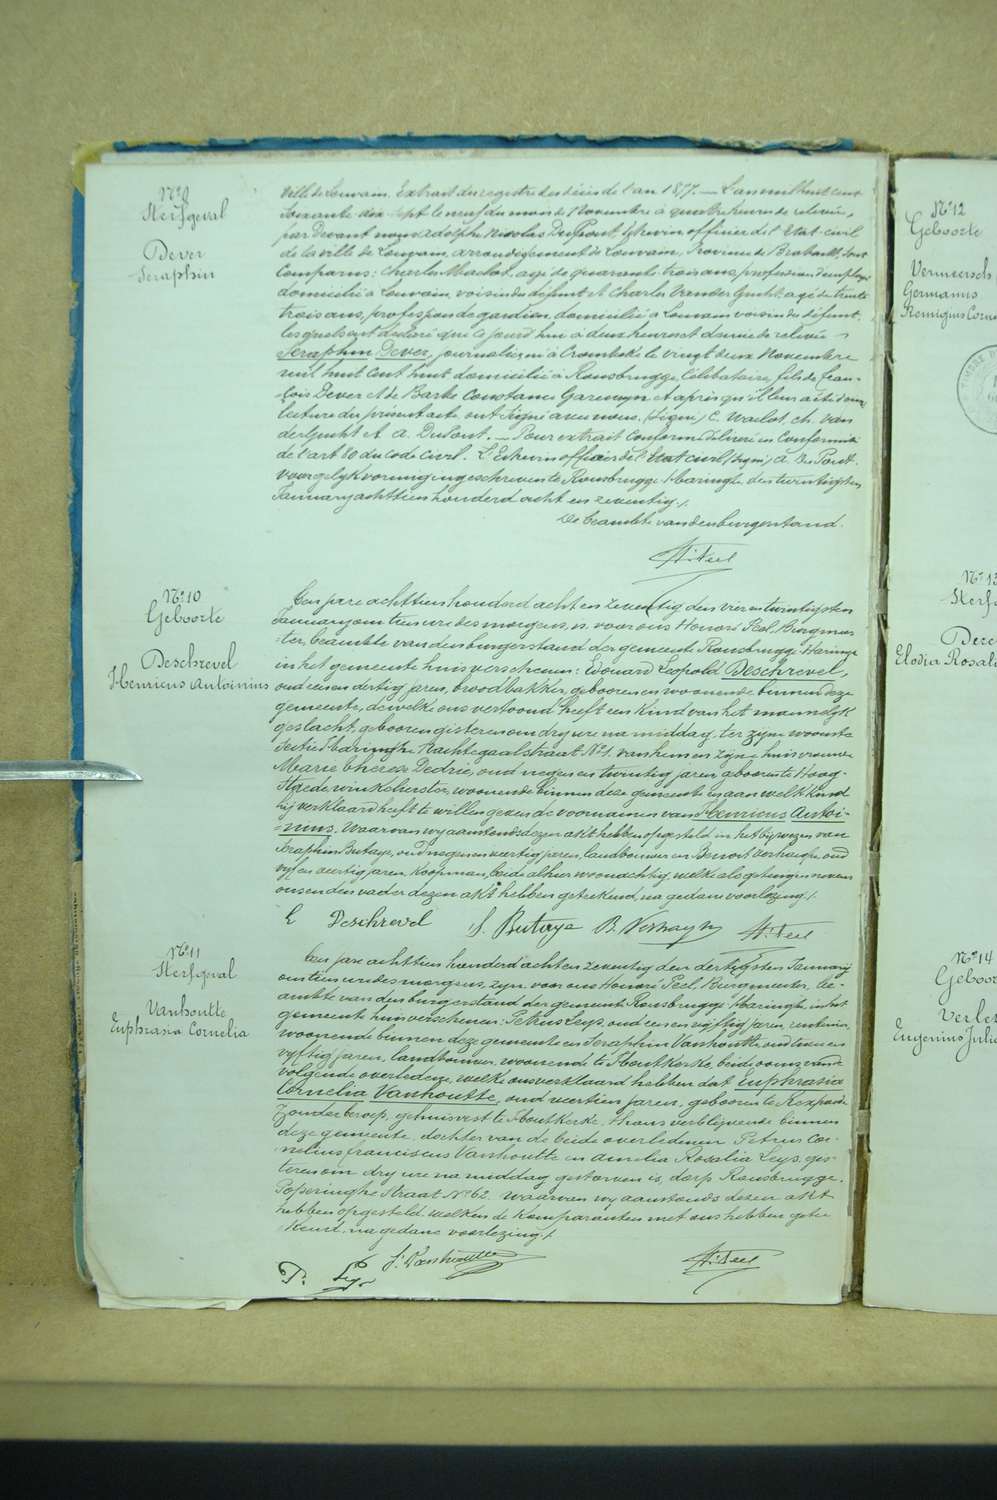 N° 9
Sterfgeval
Dever
Seraphin
Ville de Louvain. Extrait du registre des décès de l'an 1877. — L'an mil huit cent
soixante dix sept le neuf du mois de Novembre à quatre heures de relevée,
par Devant nous Adolphe Nicolas DuPont, Echevin officier de l'Etat civil
de la ville de Louvain, arrondissement de Louvain, Province de Brabant, sont
Comparus: Charles Maclot, agé de quarante trois ans, profession d'employé
domicilié à Louvain, voisin du défunt et Charles Vander Gucht, agé de trente
trois ans, profession de gardien, domicilié à Louvain voisin du défunt,
lesquels ont déclaré que ce jourd'hui à deux heures et demie de relevée
Seraphin Dever, journalier, né à Crombeke le vingt deux Novembre
mil huit cent huit domicilié à Rousbrugge, Célibataire, fils de Fran-
çois Dever et de Barbe Constance Garemyn et après qu'il leur a été donné
lecture du présent acte ont signé avec nous. (Signé) C. Maclot, Ch. Van
der Gucht et A. DuPont. — Pour extrait conforme délivré en Conformité
de l'art 80 du Code Civil. L'Echevin officier de l'Etat civil, (signé) A. Du Pont.
voor gelykvormig ingeschreven te Rousbrugge-Haringhe den twintigsten
January achttien honderd acht en zeventig./.
De beambte van den burgerstand.
H. Peel
N° 10
Geboorte
Deschrevel
Henricus Antoinius
Ten jare achttien honderd acht en zeventig den vier en twintigsten
January om tien ure des morgens, is voor ons Honoré Peel, Burgmees-
ter, beambte van den burgerstand der gemeente Rousbrugge-Haringe
in het gemeente huis verschenen: Edouard Leopold Deschrevel,
oud een en dertig jaren, broodbakker, geboren en woonende binnen deze
gemeente, dewelke ons vertoond heeft een Kind van het mannelyk
geslacht, geboren gisteren om dry ure na middag, ter zyne woonste
Sectie Haringhe Nachtegaalstraat N° 1, van hem en zijne huisvrouw
Marie Therese Dedrie, oud negen en twintig jaren geboren te Hoog-
stade, winkelierster, woonende binnen deze gemeente en aan welk Kind
hij verklaard heeft te willen geven de voornamen van Henricus Antoi-
nius, Waarvan wy aanstonds dezen akt hebben opgesteld in het bywezen van
Seraphin Butaye, oud negen en veertig jaren, landbouwer en Benoit Verhaeghe, oud
vyf en veertig jaren, Koopman, beide alhier woonachtig, welke als getuigen nevens
ons en den vader dezen akt hebben geteekend, na gedane voorlezing./.
E Deschrevel S. Butaye B. Verhaeghe H. Peel
N° 11
Sterfgeval
Vanhoutte
Euphrasia Cornelia
Ten jare achttien honderd acht en zeventig den dertigsten January
om tien ure des morgens, zyn voor ons Honoré Peel, Burgmeester, be-
ambte van den burgerstand der gemeente Rousbrugge-Haringhe in het
gemeente huis verschenen: Petrus Leys, oud een en vyftig jaren, rentenier,
woonende binnen deze gemeente en Seraphin Vanhoutte, oud twee en
vyftig jaren, landbouwer, woonende te Houtkerke, beide ooms van de
volgende overledene, welke ons verklaard hebben dat Euphrasia
Cornelia Vanhoutte, oud veertien jaren, geboren te Rexpoede
Zonder beroep, gehuisvest te Houtkerke, thans verblijvende binnen
deze gemeente, dochter van de beide overledenen Petrus Cor-
nelius franciscus Vanhoutte en Amelia Rosalia Leys, gis-
teren om dry ure na middag gestorven is, dorp Rousbrugge,
Poperinghe Straat N° 62. waarvan wy aanstonds dezen akt
hebben opgesteld welken de Komparanten met ons hebben getee-
kend, na gedane voorlezing./.
P. Leys S. Vanhoutte H. Peel
N° 12
Geboorte
Vermersch
Germanus
Remigius Corne
N° 13
Sterfg
Elodia Rosali
N° 14
Geboor
Verlet
Eugenius Juli